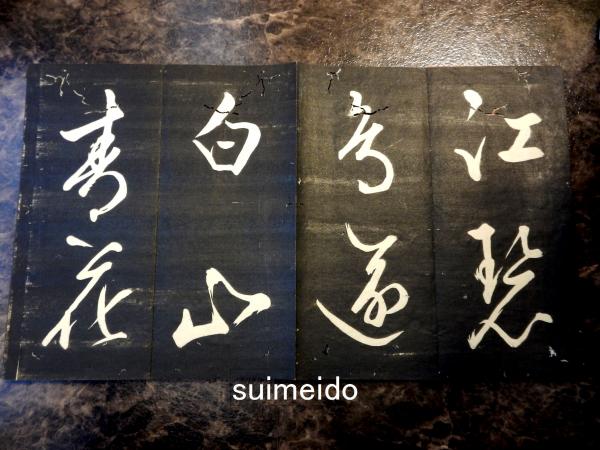 江碧
鳥逾
白山
青花
suimeido